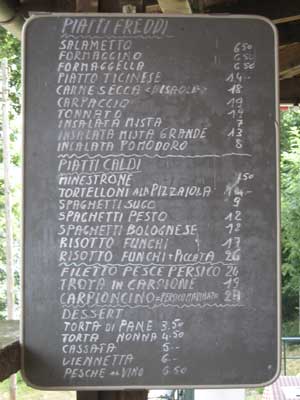 PIATTI FREDDI
SALAMETTO 6 50
FORMAGGINO 6 50
FORMAGGELLA 6 50
PIATTO TICINESE 14.-
CARNE SECCA 18
CARPACCIO 19
TONNATO 19
INSALATA MISTA 7
INSALATA MISTA GRANDE 13
INSALATA POMODORO 8
PIATTI CALDI
MINESTRONE 50
TORTELLONI ALLA PIZZAIOLA
SPAGHETTI SUGO 9
SPAGHETTI PESTO 12
SPAGHETTI BOLOGNESE 12
RISOTTO FUNGHI 17
RISOTTO FUNGHI + PICCATA 26
FILETTO PESCE PERSICO 26
TROTA IN CARPIONE 19
CARPIONCINO = PERSICO MARINATO
DESSERT
TORTA DI PANE 3.50
TORTA NONNA 4.50
CASSATA 5.-
VIENNETTA 6.-
PESCHE AL VINO 6.50